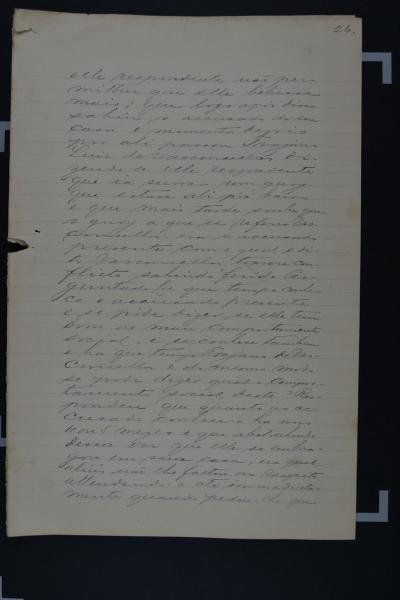 26.
elle respondente não per-
mittiu que elle bebesse
mais; que logo após disso
sahiu o accusado da sua
casa e momentos depois
por ali passou Trajano
Luiz de Vasconcellos di-
zendo a elle respondente
que ia surrar um guay
que estava ali p'ra baixo
e que mais tarde soube que
o guay a que se referia Vas-
concellos era o accusado
presente, com o qual o di-
to Vasconcellos travou con-
flicto sahindo ferido. Per-
guntado ha que tempo conhe-
ce o accusado presente
e se pode dizer se elle tem
bom ou mau comportamento
social, e se conhece tambem
e ha que tempo Trajano de Vas-
concellos e do mesmo modo
se pode dizer qual o compor-
tamento social deste? Res-
pondeu que quanto ao ac-
cusado conhece-o ha uns
nove mezes e que
desse dia que elle se embria-
gou em sua casa, na qual
aliás não lhe faltou ao respeito
attendendo-o até immediata-
mente quando pediu-lhe que